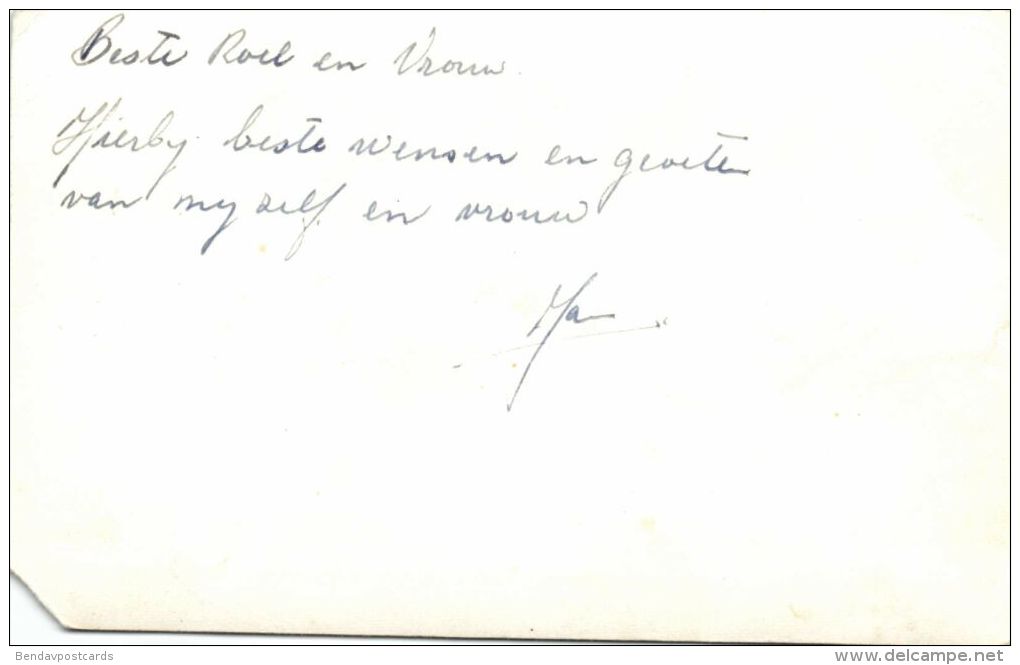 Beste Roel en Vrouw
Hierby beste wensen en groeten
van myzelf en vrouw
Bendavpostcards
www.delcampe.net